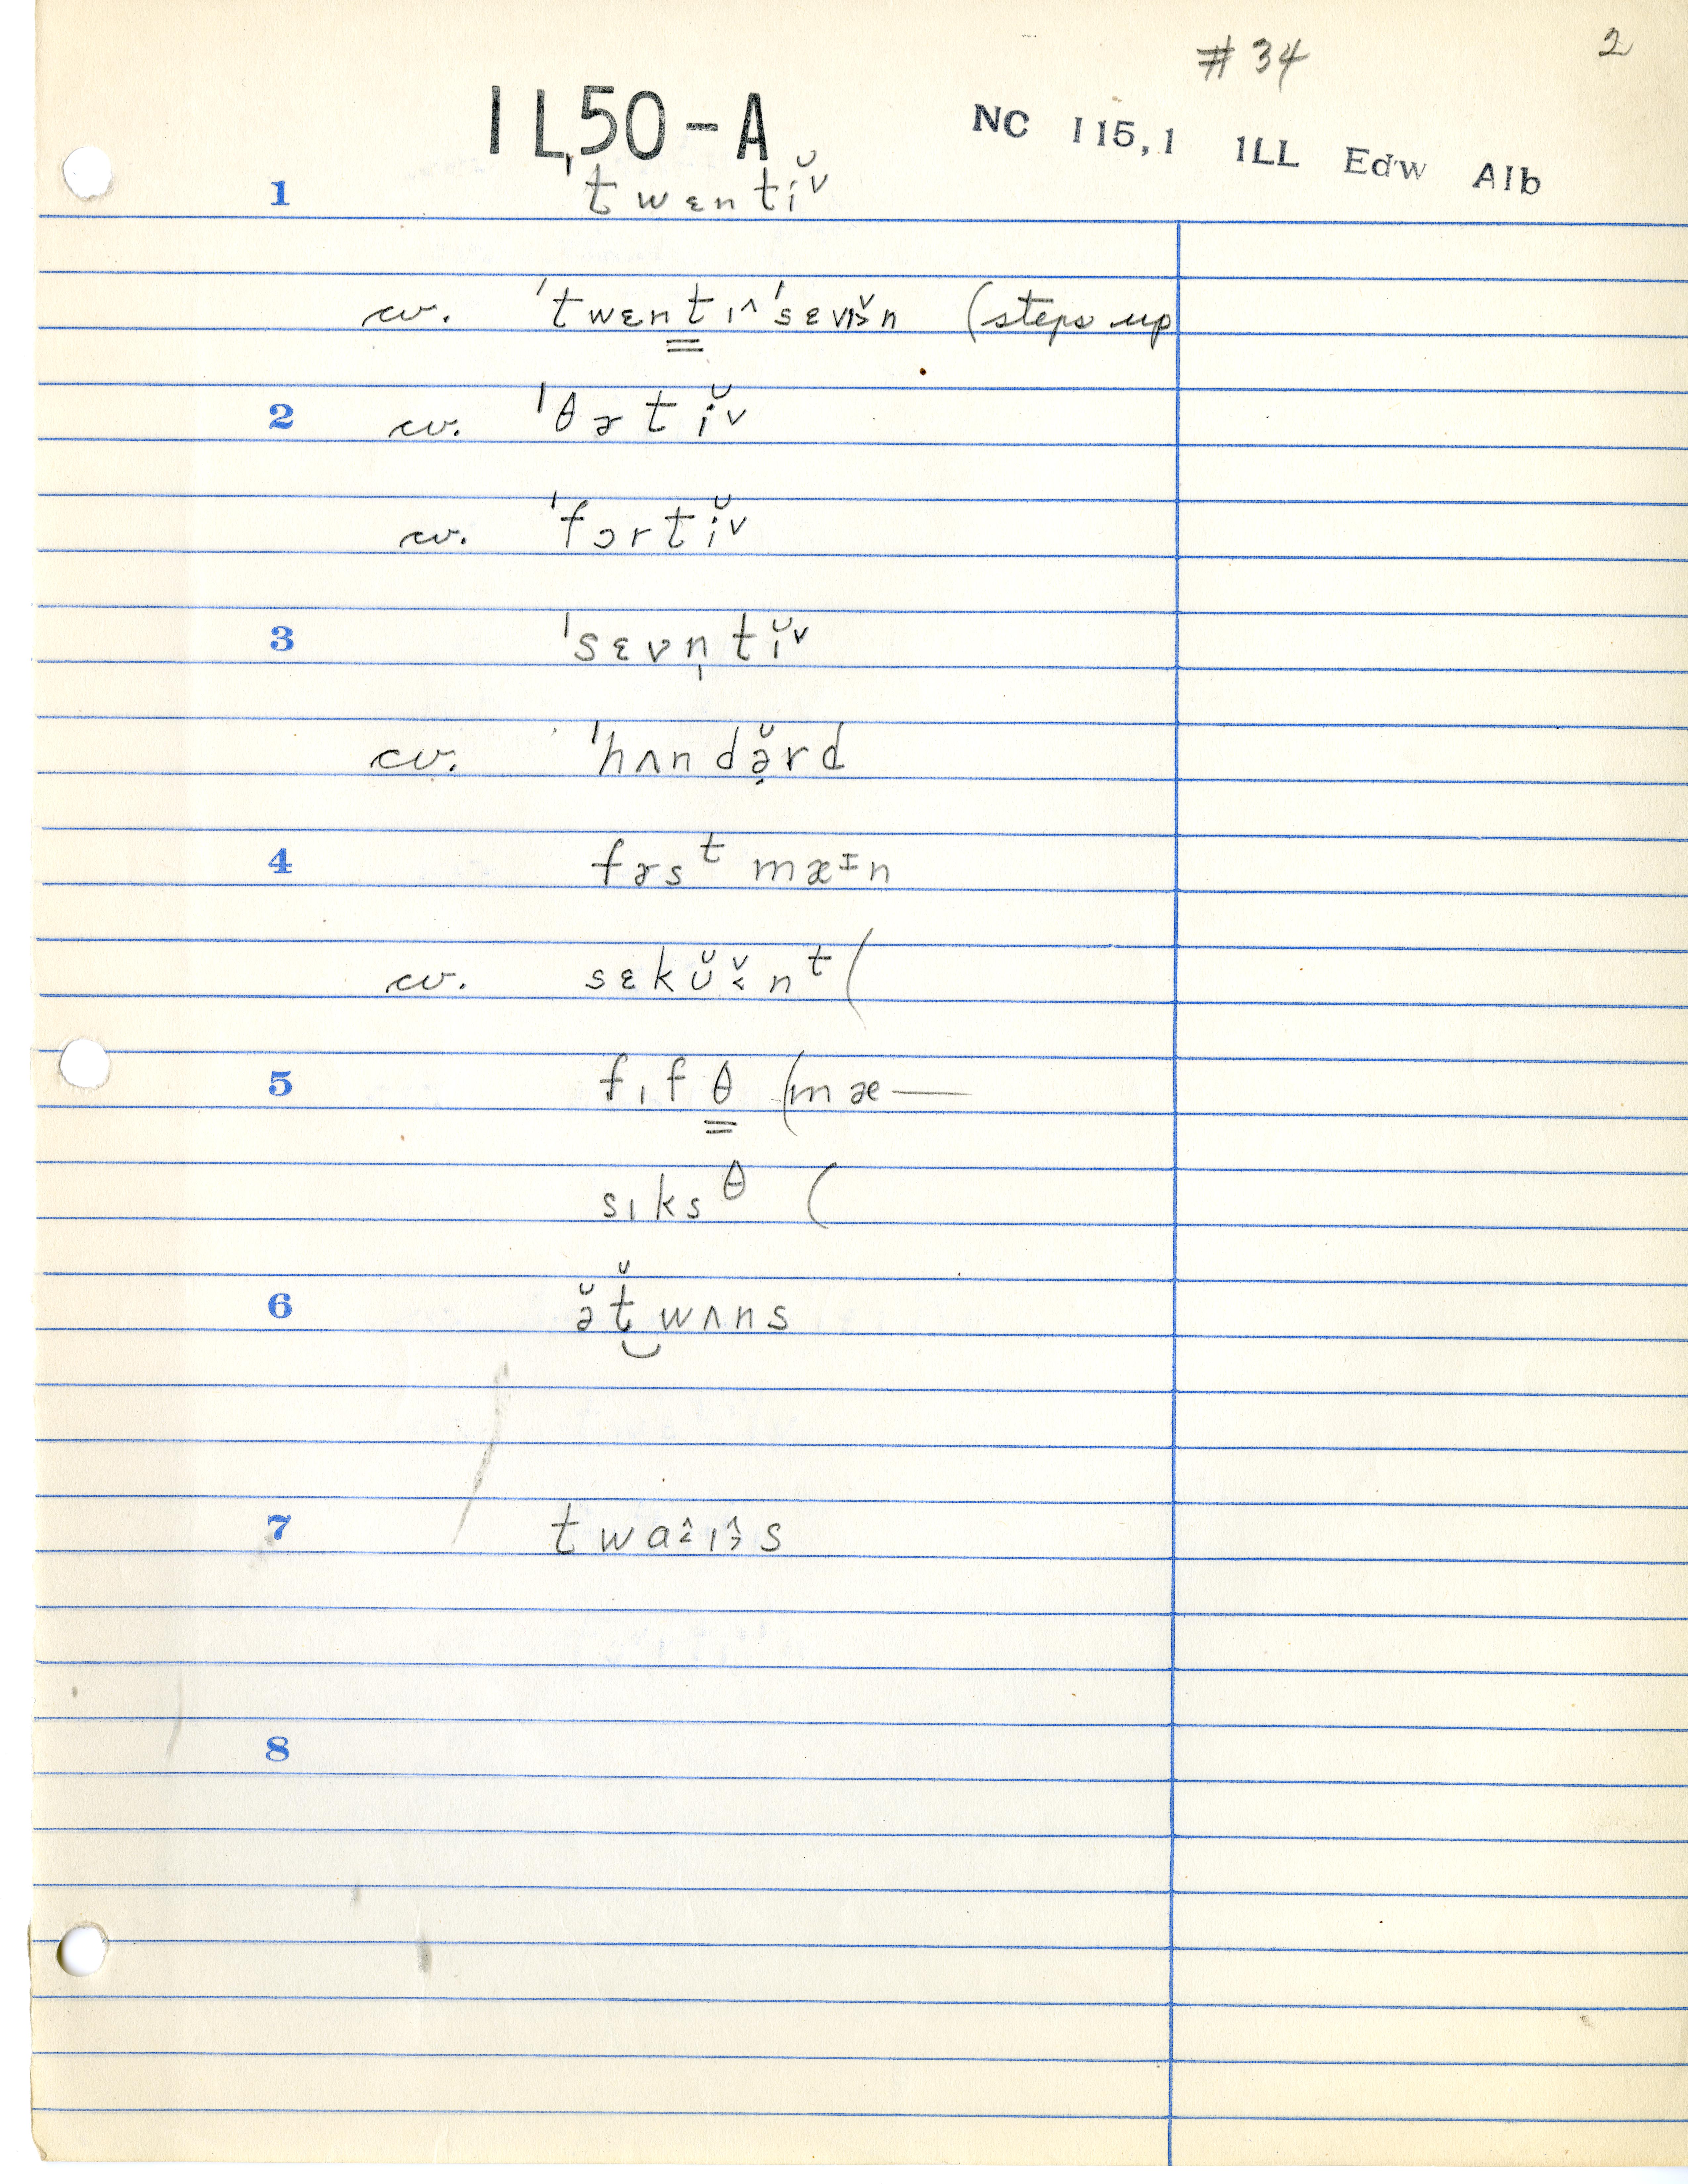 #34 2
IL50-A NC 115,1 ILL Edw Alb
1 ˈtwɛntĭ˅
cv. ˈtwɛntɪ˄ˈsɛvɪ̆>n (steps up
2 cv. ˈθɚtĭ˅
cv. ˈfɔrtĭ˅
3 ˈsɛvn̩tĭ˅
cv. ˈhʌndə̣̆rd
4 fɚsᵗ mæɪn
cv. sɛkŭ˅<nᵗ(
5 fɪfθ (mæ—
sɪksᶿ (
6 ə̆t̬̆‿wʌns
7 twa˄<ɪ˄>s
8